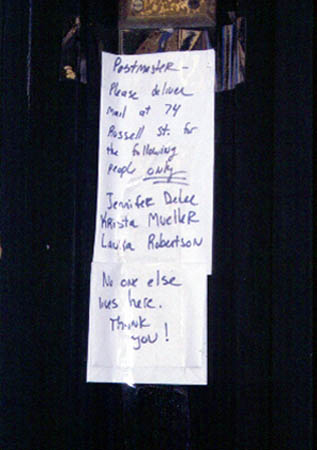 Postmaster -
Please deliver
mail at 74
Russell St. for
the following
people only
Jennifer DeLee
Krista Mueller
Laura Robertson
No one else
lives here.
Thank
you!